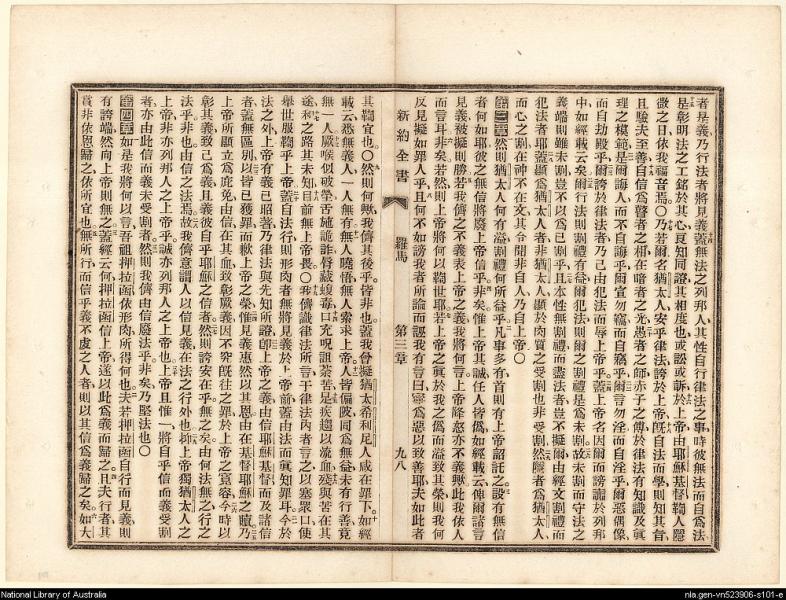 者是義乃行法者將見義蓋無法之列邦人其性自行律法之事時彼無法而自爲法
是彰明法之工銘於其心良知同證其相度也或訟或訴於上帝由耶穌基督鞫人隱
微之日依我福音焉〇乃若爾名猶太人安乎律法誇於上帝旣自法而學則知其旨
且驗夫至善自信爲瞽者之相在暗者之光愚者之師赤子之傅於律法有知識及眞
理之模範是爾誨人而不自誨乎爾宣勿竊而自竊乎爾言勿淫而自淫乎爾惡偶像
而自劫殿乎爾誇於律法者乃己由犯法而辱上帝乎蓋上帝名因爾而謗讟於列邦
中如經載云矣爾行法則割禮有益爾犯法則爾之割禮是爲未割故未割而守法之
義端則雖未割豈不以爲已割乎且本性無割禮而盡法者豈不擬爾由經文割禮而
犯法者耶蓋顯爲猶太人者非猶太人顯於肉質之受割也非受割然隱者爲猶太人
而心之割在神不在文其令聞非自人乃自上帝〇
第三章然則猶太人何有溢割禮何所益乎凡事多有首則有上帝詔託之設有無信
者何如耶彼之無信將廢上帝信乎非矣惟上帝其誠任人皆僞如經載云俾爾諸言
見義被擬則勝若我儕之不義表上帝之義我將何言上帝降怒亦不義歟此我依人
而言耳非矣若然則上帝將何以鞫世耶若上帝之眞於我之僞而溢致其榮則我何
反見擬如罪人乎且何不如謗我者所論而誣我有言曰寧爲惡以致善耶夫如此者
新約全書 羅馬 第三章 九八
其鞫宜也〇然則何歟我儕其後乎皆非也蓋我曾擬猶太希利尼人咸在罪下如經
載云㤀無義人一人無有無人曉悟無人索求上帝人皆偏陂同爲無益未有行善竟
無一人厥喉似破塋舌施詭詐唇藏蝮毒口充呪詛荼苦是疾趨以流血殘與苦在其
途和之路其未知目前無上帝畏〇我儕識律法所言于律法內者言之以塞眾口使
舉世服鞫乎上帝蓋自法行則形肉者無將見義於上帝前蓋由法而眞知罪耳今於
法之外上帝有義已昭著乃律法與先知所證卽上帝之義由信耶穌基督而及諸信
者蓋無區別以皆已獲罪而歉上帝之榮惟見義惠然以其恩由在基督耶穌之贖乃
上帝所顯立爲庇免由信在其血致彰厥義因不究旣往之罪於上帝之寬容今時以
彰其義致己爲義且義彼自乎耶穌之信者然則誇安在乎無之矣由何法無之行之
法乎非也由信之法焉故我儕意謂人以信見義在法之行外也抑上帝獨猶太人之
上帝非亦列邦人之上帝乎誠亦列邦人之上帝也上帝且惟一將自乎信而義受割
者亦由此信而義未受割者然則我儕由信廢法乎非矣乃堅法也〇
第四章如是我將何以言吾祖押拉函依形肉所得何也夫若押拉函自行而見義則
有誇端然向上帝則無之蓋經云何押拉函信上帝遂以此爲義而歸之且夫行者其
賞非依恩歸之依所宜也無所行而信乎義不虔之人者則以其信爲義歸之矣如大
National Library of Australia
nla.gen-vn523906-s101-e